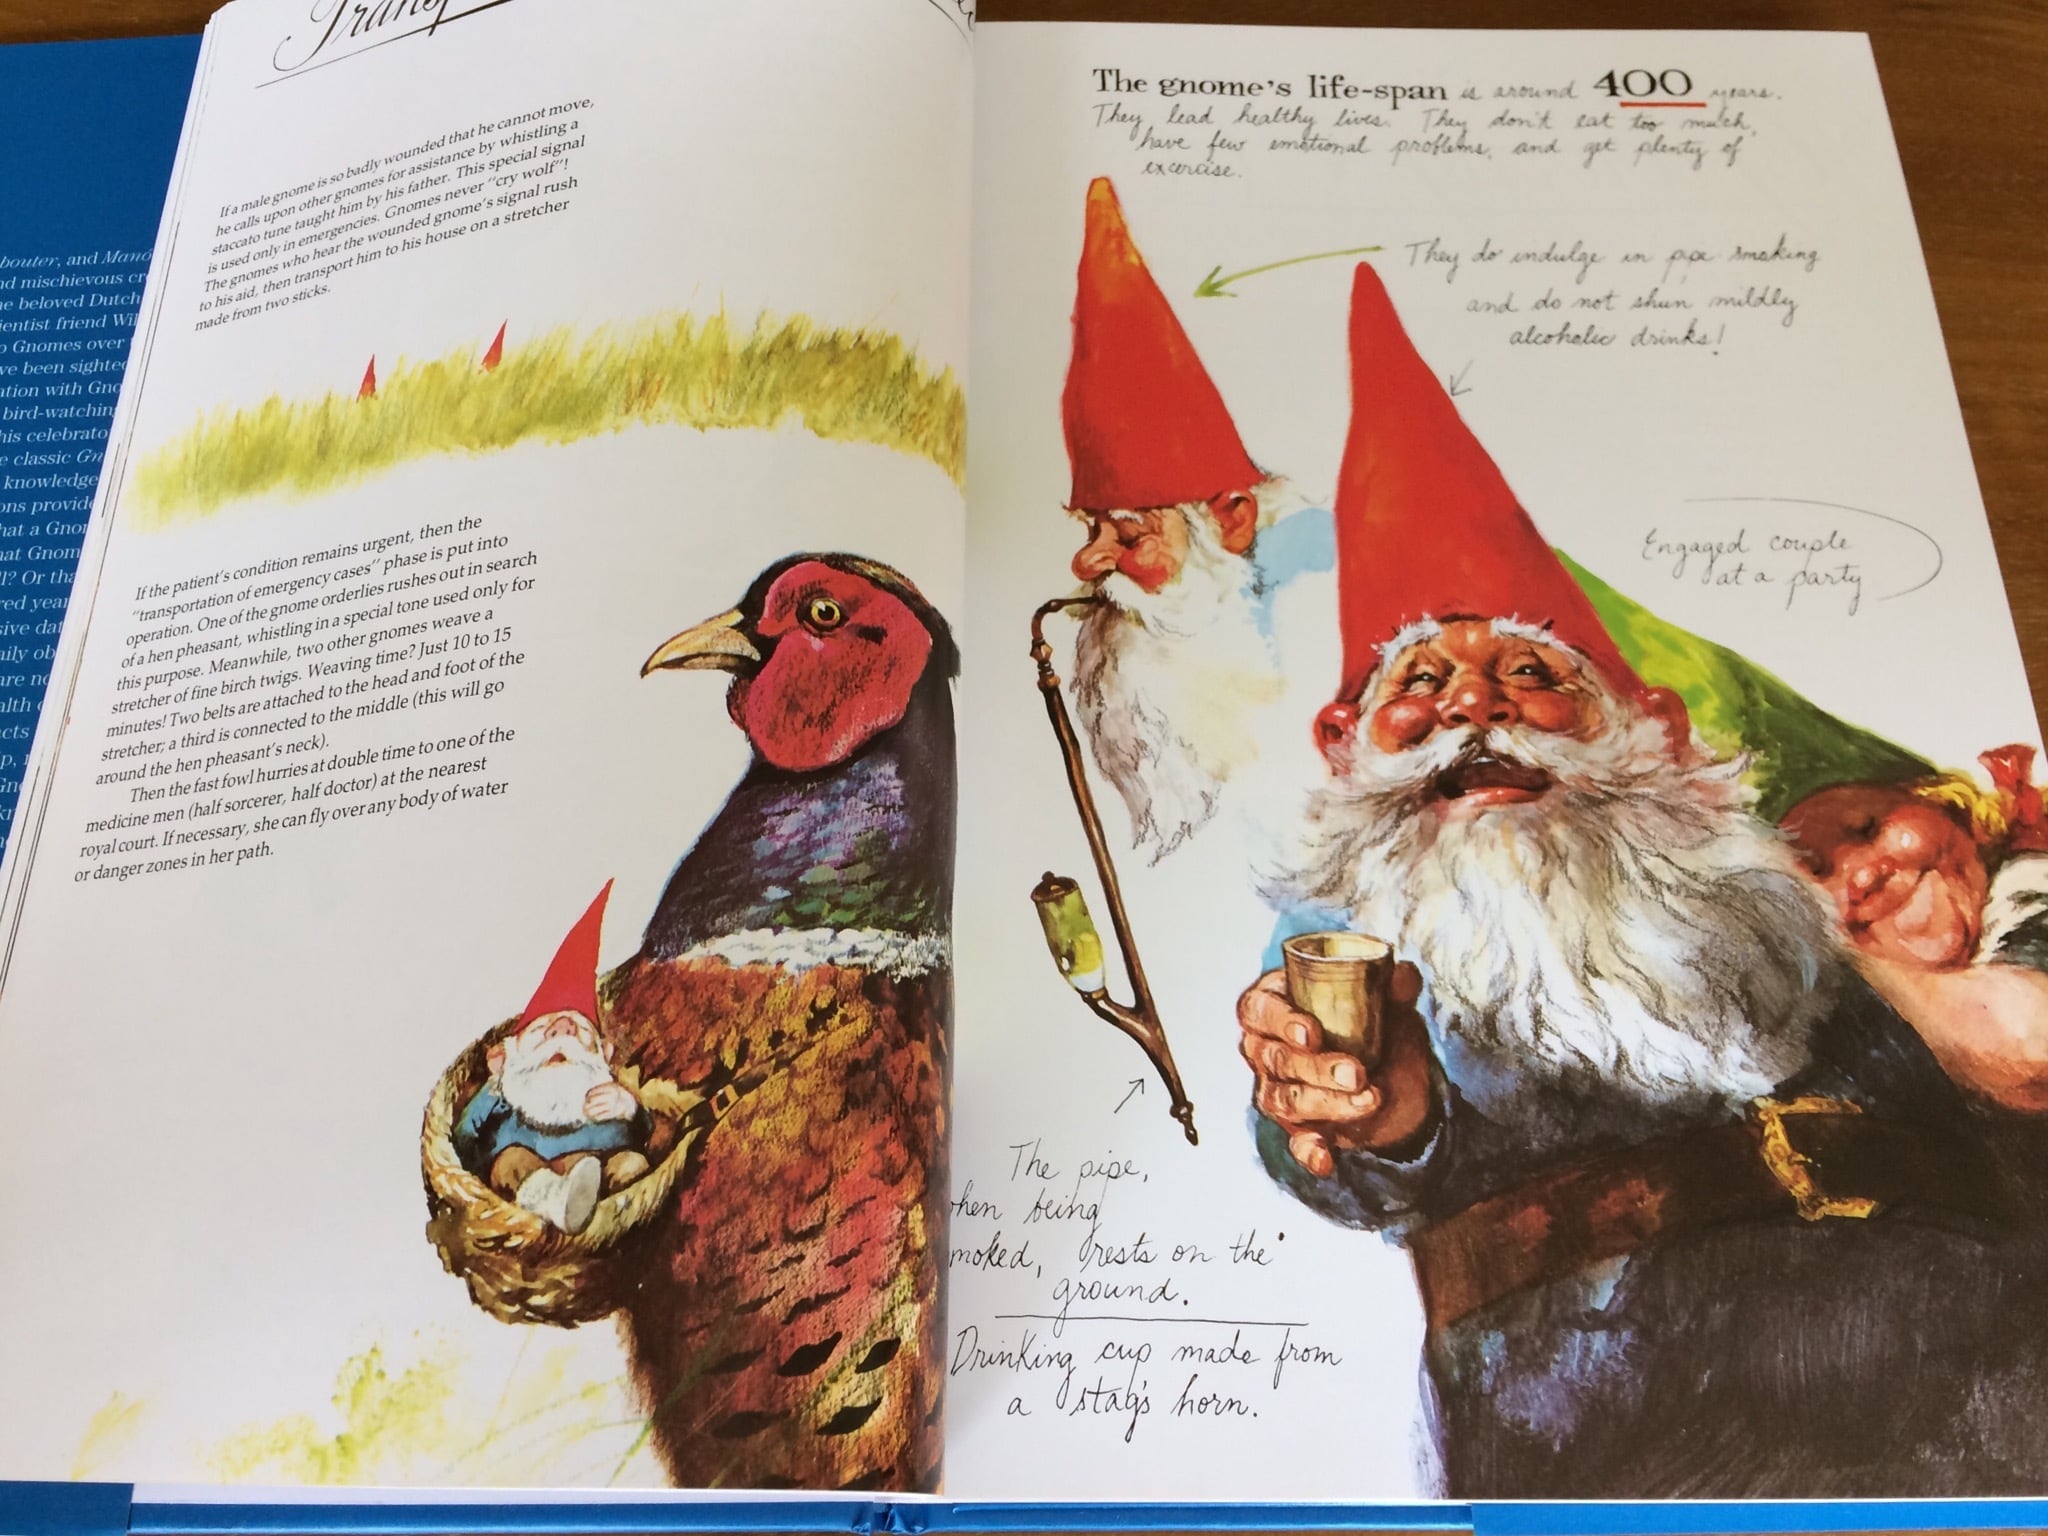 bouter, and Mano
nd mischievous cr
e beloved Dutch
ientist friend Wil
o Gnomes over
ve been sighted
ation with Gno
bird-watching
his celebrato
e classic Gn
knowledge
ons provide
hat a Gno
hat Gnom
l? Or tha
red yea
sive da
aily ob
are no
alth
acts
Tran
If a male gnome is so badly wounded that he cannot move,
he calls upon other gnomes for assistance by whistling a
staccato tune taught him by his father. This special signal
is used only in emergencies. Gnomes never "cry wolf"!
The gnomes who hear the wounded gnome's signal rush
to his aid, then transport him to his house on a stretcher
made from two sticks.
If the patient's condition remains urgent, then the
"transportation of emergency cases" phase is put into
operation. One of the gnome orderlies rushes out in search
of a hen pheasant, whistling in a special tone used only for
this purpose. Meanwhile, two other gnomes weave a
stretcher of fine birch twigs. Weaving time? Just 10 to 15
minutes! Two belts are attached to the head and foot of the
stretcher; a third is connected to the middle (this will go
around the hen pheasant's neck).
Then the fast fowl hurries at double time to one of the
medicine men (half sorcerer, half doctor) at the nearest
royal court. If necessary, she can fly over any body of water
or danger zones in her path.
The gnome's life-span is around 400 years.
They lead healthy lives. They don't eat too much,
have few emotional problems, and get plenty of
exercise.
They do indulge in pipe smoking
and do not shun mildly
alcoholic drinks!
Engaged couple
at a party
The pipe,
hen being
moked, rests on the
ground.
Drinking cup made from
a stag's horn.